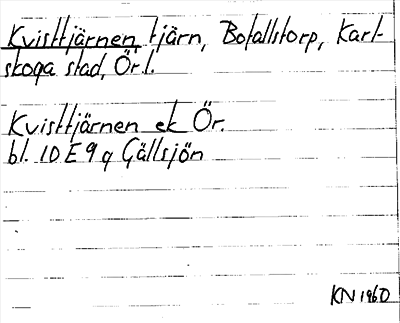 Kvisttjärnen, tjärn, Bofallstorp, Karl-
skoga stad, Ör. l.
Kvisttjärnen ek Ör.
bl. 10 E 9 g Gällsjön
KN 1960